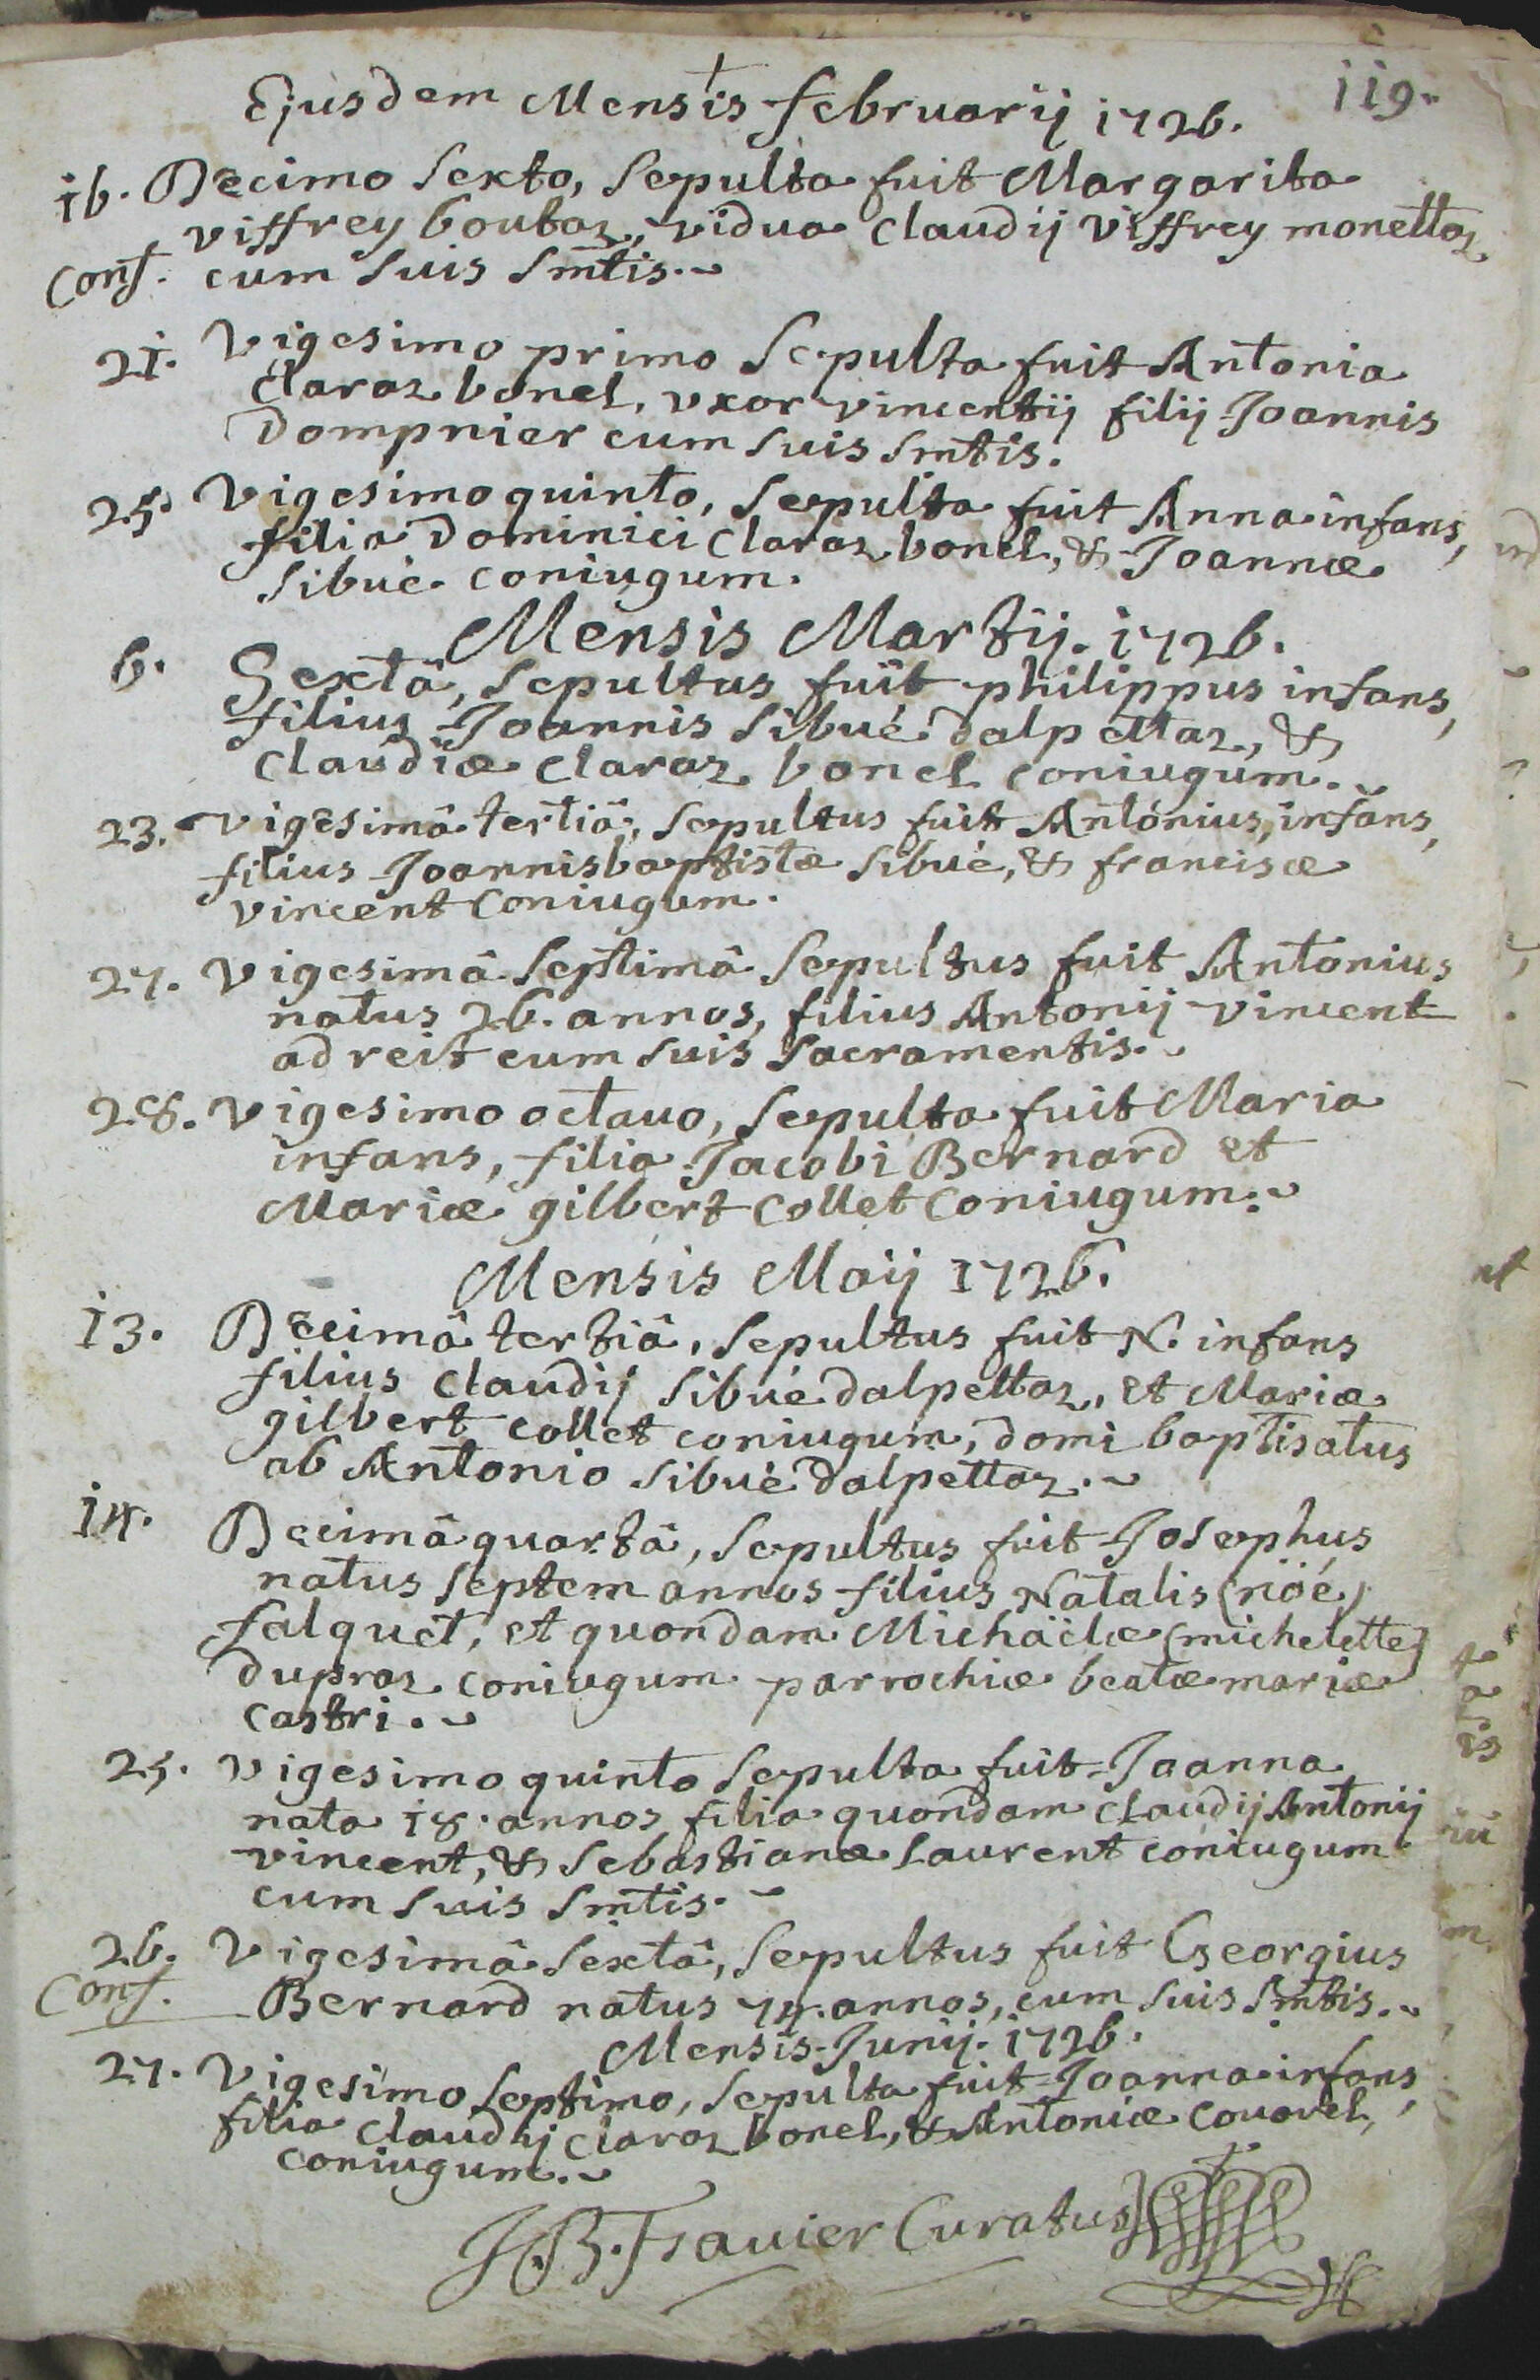 119.
Ejusdem Mensis februarij 1726.
16. Decimo Sexto, Sepulta fuit Margarita
viffrey boutaz, vidua Claudij viffrey monettaz
Conf. cum suis Smtis.
21. Vigesimo primo Sepulta fuit Antonia
Claraz bonel, vxor vincentij filij Joannis
Dompnier cum suis Smtis.
25. Vigesimo quinto, Sepulta fuit Anna infans,
filia Dominici Claraz bonel, & Joannæ
Sibué coniugum.
Mensis Martij. 1726.
6. Sextâ, Sepultus fuit philippus infans,
filius Joannis Sibué dalpettaz, &
Claudiæ Claraz bonel coniugum.
23. Vigesimâ tertiâ, Sepultus fuit Antonius, infans,
filius Joannisbaptistæ Sibué, & francisæ
vincent Coniugum.
27. Vigesimâ Septimâ Sepultus fuit Antonius
natus 26. annos, filius Antonij vincent
adreit cum suis Sacramentis.
28. Vigesimo octauo, Sepulta fuit Maria
infans, filia Jacobi Bernard et
Mariæ gilbert Collet Coniugum.
Mensis Maij 1726.
13. Decimâ tertiâ, Sepultus fuit N. infans
filius Claudij Sibué dalpettaz, et Mariæ
gilbert collet coniugum, domi baptisatus
ab Antonio Sibué dalpettaz.
14. Decimâ quartâ, Sepultus fuit Josephus
natus Septem annos filius Natalis (nöé)
falquet, et quondam Michäelæ (michelette)
dupraz coniugum parrochiæ beatæ mariæ
Castri.
25. Vigesimo quinto Sepulta fuit Joanna
nata 18. annos filia quondam Claudij Antonij
vincent, & Sebastianæ Laurent coniugum
cum suis Smtis.
26. Vigesimâ Sextâ, Sepultus fuit Georgius
Conf. Bernard natus 74. annos, cum suis Smtis.
Mensis Junij. 1726.
27. Vigesimo Septimo, Sepulta fuit Joanna infans,
filia Claudij Claraz bonel, & Antoniæ Couarel,
coniugum.
J.B. Frauier Curatus